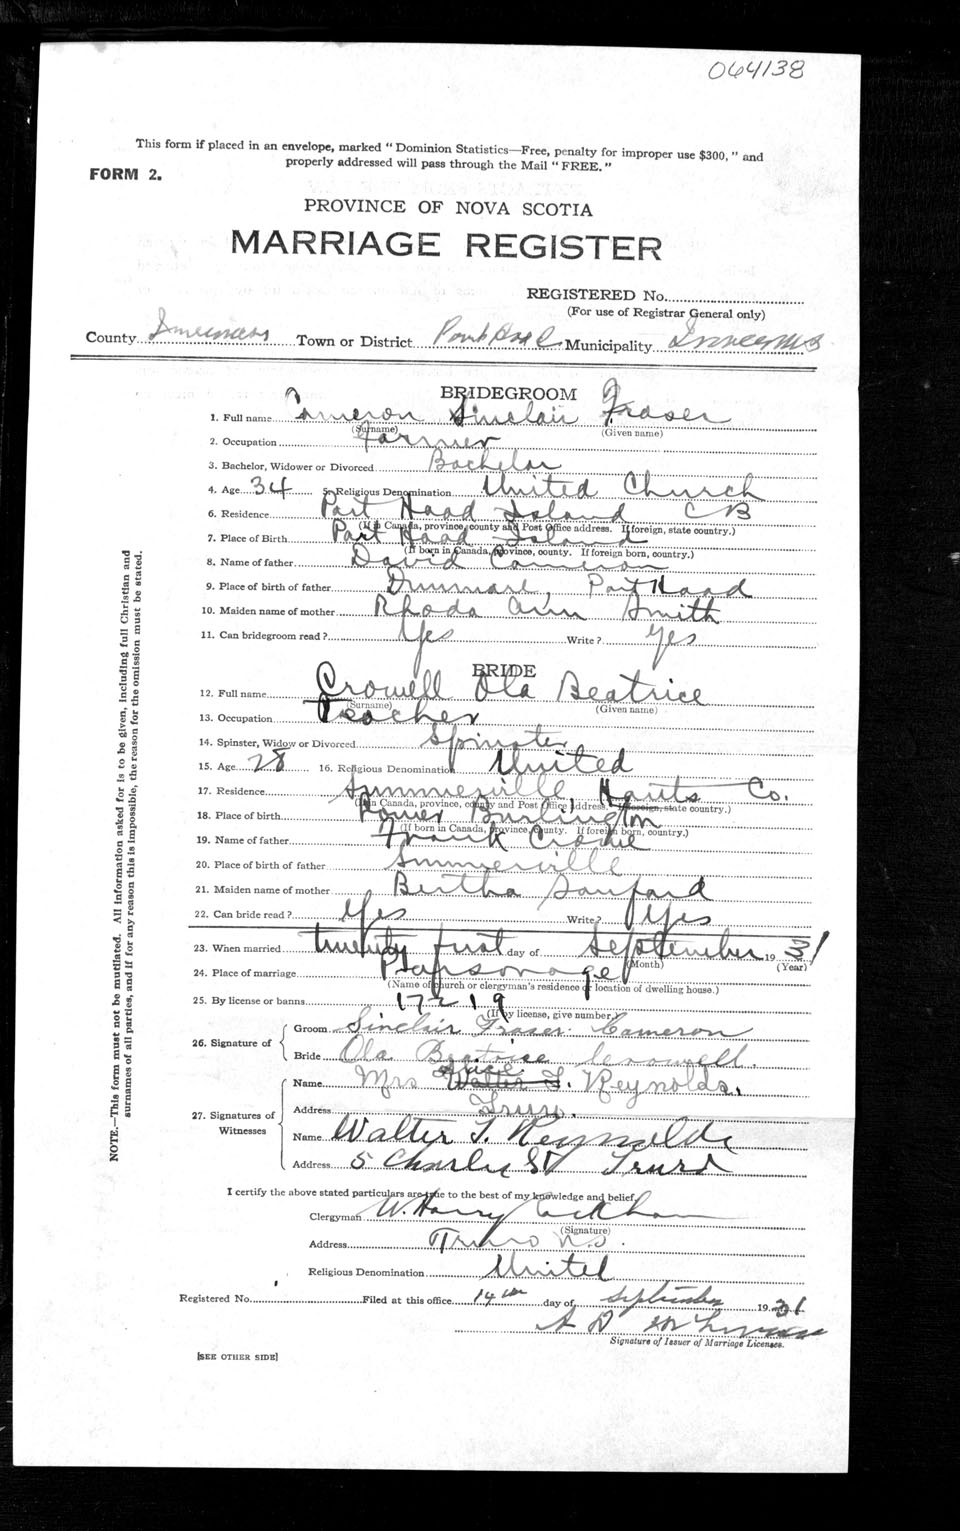 064138
This form if placed in an envelope, marked "Dominion Statistics—Free, penalty for improper use $300," and
properly addressed will pass through the Mail "FREE."
FORM 2.
PROVINCE OF NOVA SCOTIA
MARRIAGE REGISTER
REGISTERED No.
(For use of Registrar General only)
County Inverness Town or District Port Hood Municipality Inverness
BRIDEGROOM
1. Full name Cameron Sinclair Fraser
(Surname) (Given name)
2. Occupation Farmer
3. Bachelor, Widower or Divorced Bachelor
4. Age 34 5. Religious Denomination United Church
6. Residence Port Hood Island C B
(If in Canada, province, county and Post Office address. If foreign, state country.)
7. Place of Birth Port Hood Island
(If born in Canada, province, county. If foreign born, country.)
8. Name of father David Cameron
9. Place of birth of father Port Hood
10. Maiden name of mother Rhoda Ann Smith
11. Can bridegroom read? Yes Write? Yes
BRIDE
12. Full name Crowell Ola Beatrice
(Surname) (Given name)
13. Occupation Teacher
14. Spinster, Widow or Divorced Spinster
15. Age 28 16. Religious Denomination United
17. Residence Summerville Hants Co.
(If in Canada, province, county and Post Office address. If foreign, state country.)
18. Place of birth Lower Burlington
(If born in Canada, province, County. If foreign born, country.)
19. Name of father Frank
20. Place of birth of father Summerville
21. Maiden name of mother Bertha Sanford
22. Can bride read? Yes Write? Yes
23. When married twenty first day of September 1931
(Month) (Year)
24. Place of marriage Parsonage
(Name of church or clergyman's residence or location of dwelling house.)
25. By license or banns 17219
(If by license, give number)
26. Signature of
Groom Sinclair Fraser Cameron
Bride Ola Beatrice Crowell.
27. Signatures of Witnesses
Name Mrs Walter T. Reynolds.
Address Truro.
Name Walter T. Reynolds
Address 5 Charles St Truro
I certify the above stated particulars are true to the best of my knowledge and belief,
Clergyman W. Harry
(Signature)
Address Truro N.S.
Religious Denomination United
Registered No. Filed at this office 14th day of September 1931
A D
Signature of Issuer of Marriage Licenses.
[SEE OTHER SIDE]
NOTE.—This form must not be mutilated. All information asked for is to be given, including full Christian and
surnames of all parties, and if for any reason this is impossible, the reason for the omission must be stated.